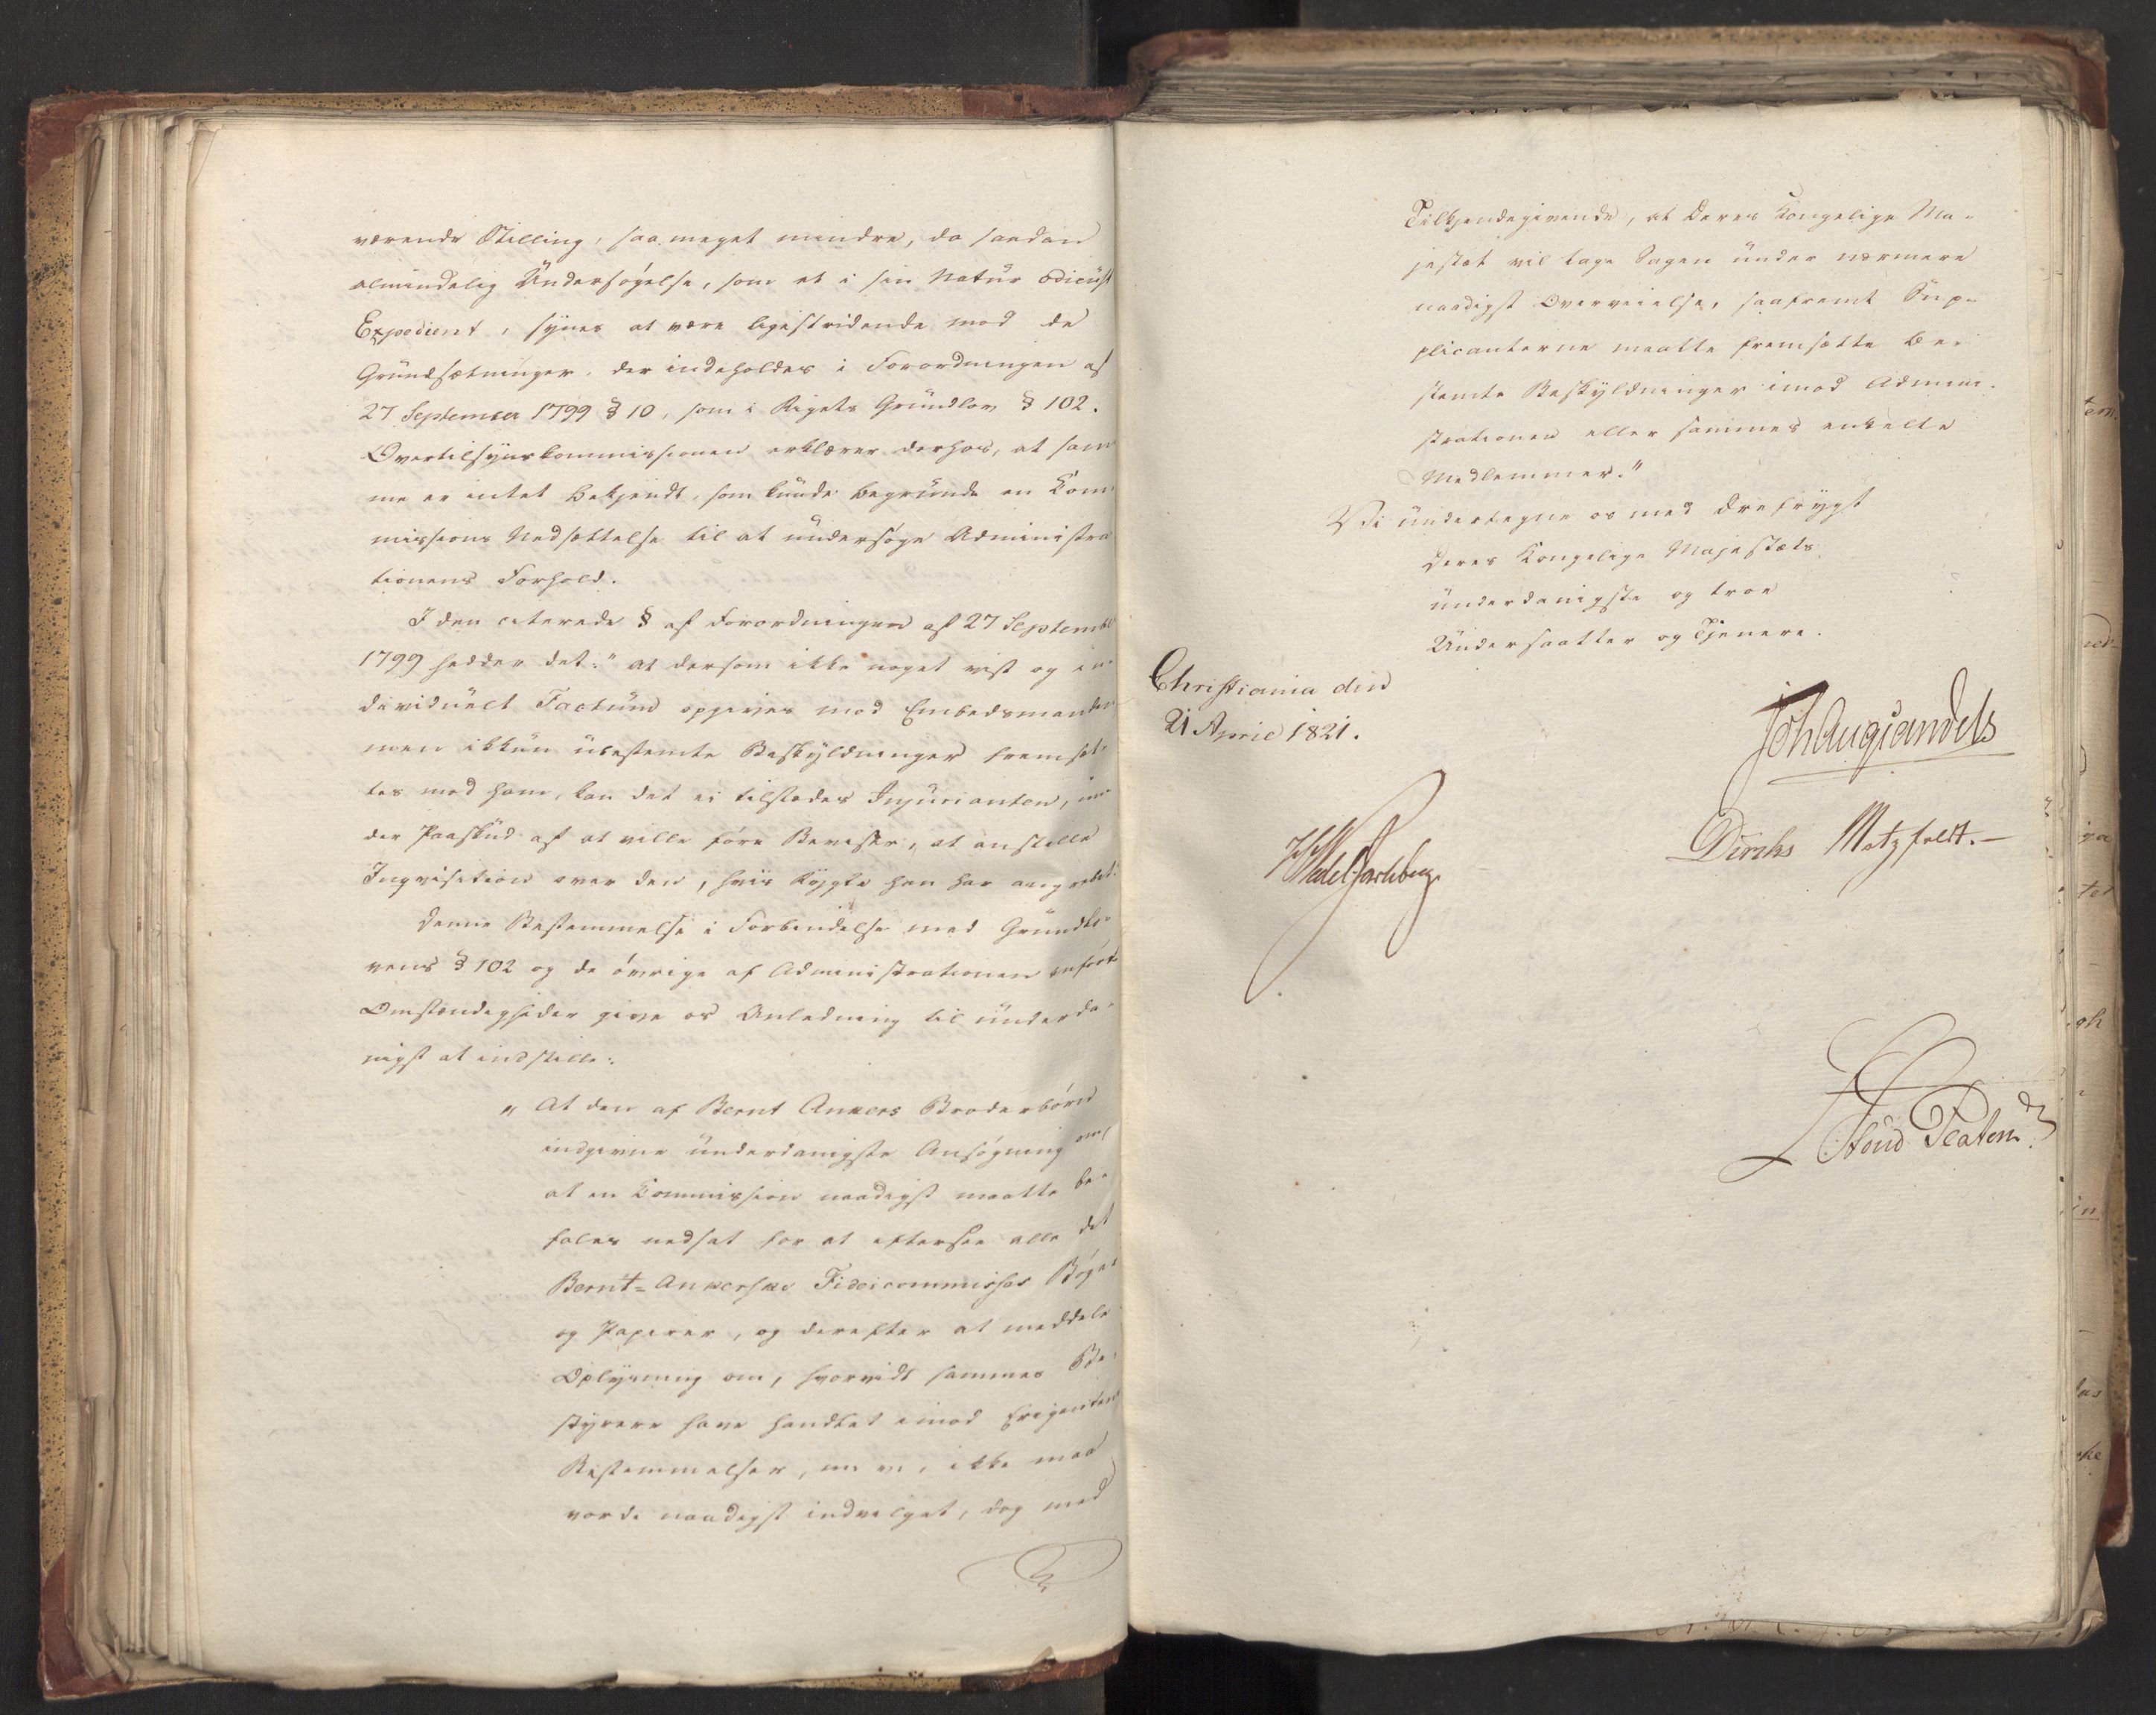 værende Stilling, saa meget mindre, da saadan
almindelig Undersøgelse, som et i sin Natur odieust
Expedient, synes at være ligestridende mod de
Grundsætninger, der indeholdes i Forordningen af
27 September 1799 § 10, som i Rigets Grundlov § 102.
Overtilsynskommissionen erklærer derhos, at sam
me er intet bekjendt, som kunde begrunde en Kom
missions Nedsættelse til at undersøge Administra
tionens Forhold.
I den citerede § af Forordningen af 27 Septembr
1799 hedder det: "at dersom ikke noget vist og in-
dividuelt Factum opgives mod Embedsmanden
men ikkun ubestemte Beskyldninger fremsæt-
tes mod ham, kan det ei tilstædes Injurianten, un
der Paaskud af at ville føre Beviser, at anstille
Inqvisition over den, hvis Rygte han har angrebet."
Denne Bestemmelse i Forbindelse med Grundlo-
vens § 102 og de øvrige af Administrationen anførte
Omstændigheder give os Anledning til underda-
nigst at indstille:
"At den af Bernt Ankers Broderbørn
indgivne underdanigste Ansøgning om,
at en Kommission naadigst maatte be-
fales nedsat for at eftersee alle det
Bernt-Ankerske Fideicommisses Bøger
og Papirer, og derefter at meddele
Oplysning om, hvorvidt sammes Be-
styrere have handlet imod Erigentens
Bestemmelser, ikke maa
vorde naadigst indvilget, dog med
Tilkjendegivende, at Deres Kongelige Ma-
jestæt vil tage Sagen under nærmere
naadigst Overveielse, saafremt Sup-
plicanterne maatte fremsætte be-
stemte Beskyldninger imod Admini-
strationen eller sammes enkelte
Medlemmer."
Vi undertegne os med Ærefrygt
Deres Kongelige Majestæts
underdanigste og troe
Undersaatter og Tjenere.
Christiania den
21 April 1821.
Joh Aug Sandels
HWedel Jarlsberg
Diriks Motzfeldt.-
Stoud Platou